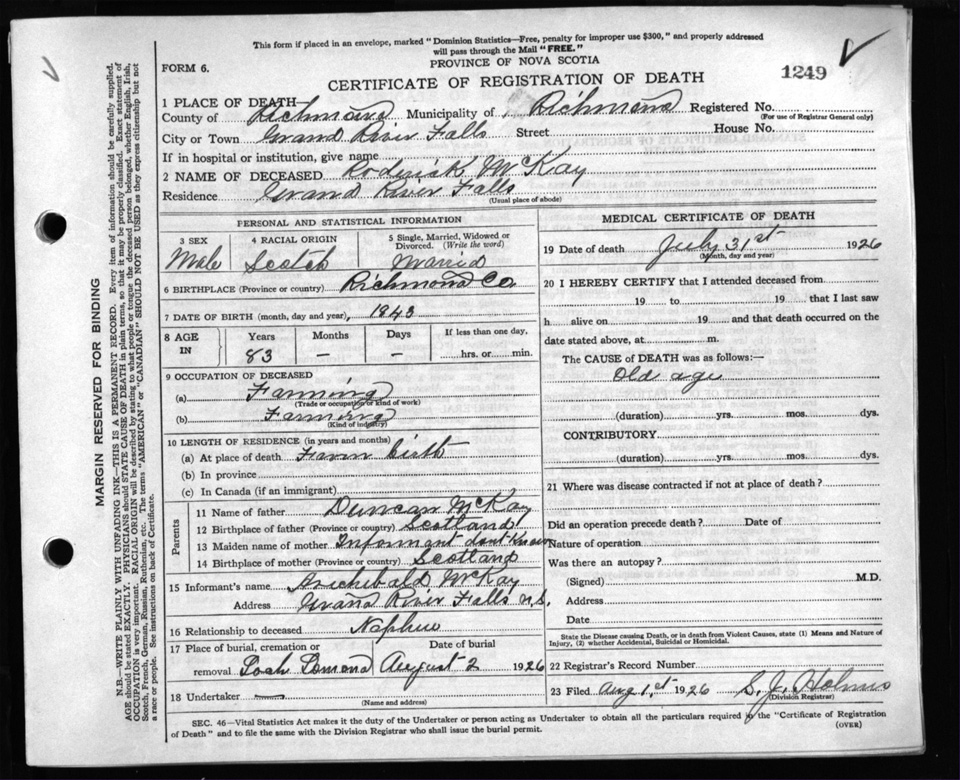 This form if placed in an envelope, marked "Dominion Statistics—Free, penalty for improper use $300," and properly addressed
will pass through the Mail "FREE."
PROVINCE OF NOVA SCOTIA
FORM 6.
CERTIFICATE OF REGISTRATION OF DEATH
1249
1 PLACE OF DEATH—
County of Richmond Municipality of Richmond Registered No.
(For use of Registrar General only)
City or Town Grand River Falls Street House No.
If in hospital or institution, give name
2 NAME OF DECEASED Roderick McKay
Residence Grand River Falls
(Usual place of abode)
PERSONAL AND STATISTICAL INFORMATION
3 SEX 4 RACIAL ORIGIN 5 Single, Married, Widowed or
Divorced. (Write the word)
Male Scotch
6 BIRTHPLACE (Province or country) Richmond Co
7 DATE OF BIRTH (month, day and year), 1843
8 AGE IN Years Months Days If less than one day,
83 — — hrs. or min.
9 OCCUPATION OF DECEASED
(a) Farming
(Trade or occupation or kind of work)
(b) Farming
(Kind of industry)
10 LENGTH OF RESIDENCE (in years and months)
(a) At place of death From birth
(b) In province
(c) In Canada (if an immigrant)
Parents
11 Name of father Duncan McKay
12 Birthplace of father (Province or country) Scotland
13 Maiden name of mother Informant dont know
14 Birthplace of mother (Province or country) Scotland
15 Informant's name Archibald McKay
Address Grand River Falls N.S.
16 Relationship to deceased Nephew
17 Place of burial, cremation or Date of burial
removal Loch Lomond August 2 1926
18 Undertaker —
(Name and address)
MEDICAL CERTIFICATE OF DEATH
19 Date of death July 31st 1926
(Month, day and year)
20 I HEREBY CERTIFY that I attended deceased from
19 to 19 that I last saw
h alive on 19 and that death occurred on the
date stated above, at m.
The CAUSE of DEATH was as follows:—
Old age
(duration) yrs. mos. dys.
CONTRIBUTORY
(duration) yrs. mos. dys.
21 Where was disease contracted if not at place of death?
Did an operation precede death? Date of
Nature of operation
Was there an autopsy?
(Signed) M.D.
Address
Date
State the Disease causing Death, or in death from Violent Causes, state (1) Means and Nature of
Injury, (2) whether Accidental, Suicidal or Homicidal.
22 Registrar's Record Number
23 Filed Aug 1st 1926 S. J. Holmes
(Division Registrar)
SEC. 46—Vital Statistics Act makes it the duty of the Undertaker or person acting as Undertaker to obtain all the particulars required in the "Certificate of Registration
of Death" and to file the same with the Division Registrar who shall issue the burial permit.
(OVER)
MARGIN RESERVED FOR BINDING
N.B.—WRITE PLAINLY WITH UNFADING INK—THIS IS A PERMANENT RECORD. Every item of information should be carefully supplied.
AGE should be stated EXACTLY. PHYSICIANS should STATE CAUSE OF DEATH in plain terms, so that it may be properly classified. Exact statement of
OCCUPATION is very important. RACIAL ORIGIN will be described by stating to what people or tongue the deceased person belonged, whether English, Irish,
Scotch, French, German, Russian, Ruthenian, etc. The terms "AMERICAN" or "CANADIAN" SHOULD NOT BE USED as they express citizenship but not
a race or people. See instructions on back of Certificate.